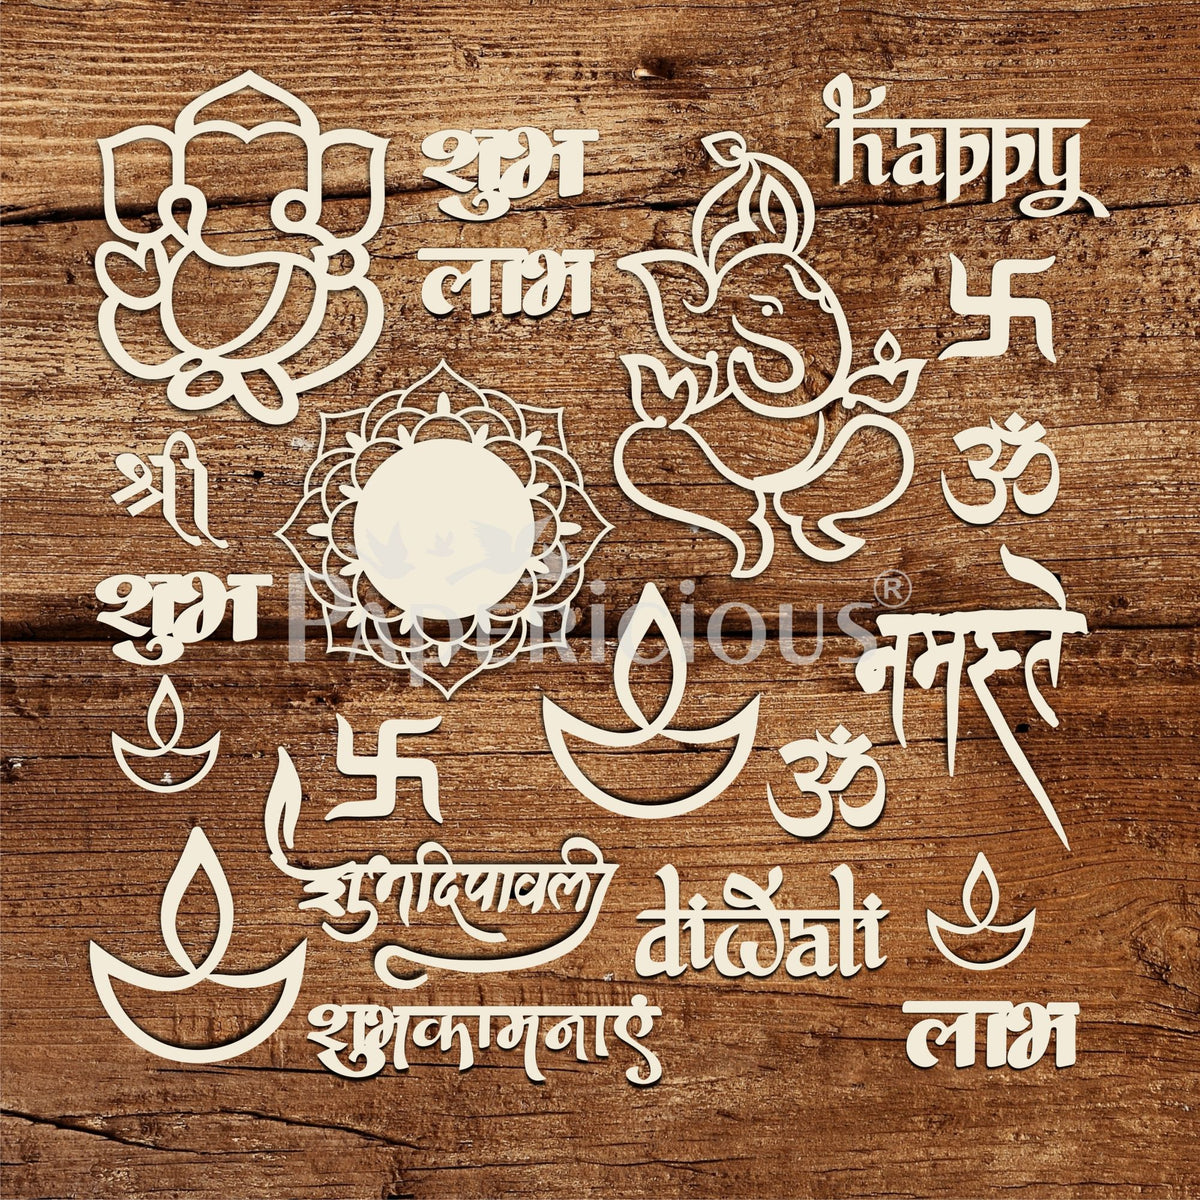 शुभ
happy
लाभ
ॐ
श्री
शुभ
PAPERICIOUS®
नमस्ते
ॐ
शुभ दिपावली
diwali
शुभकामनाएं
लाभ